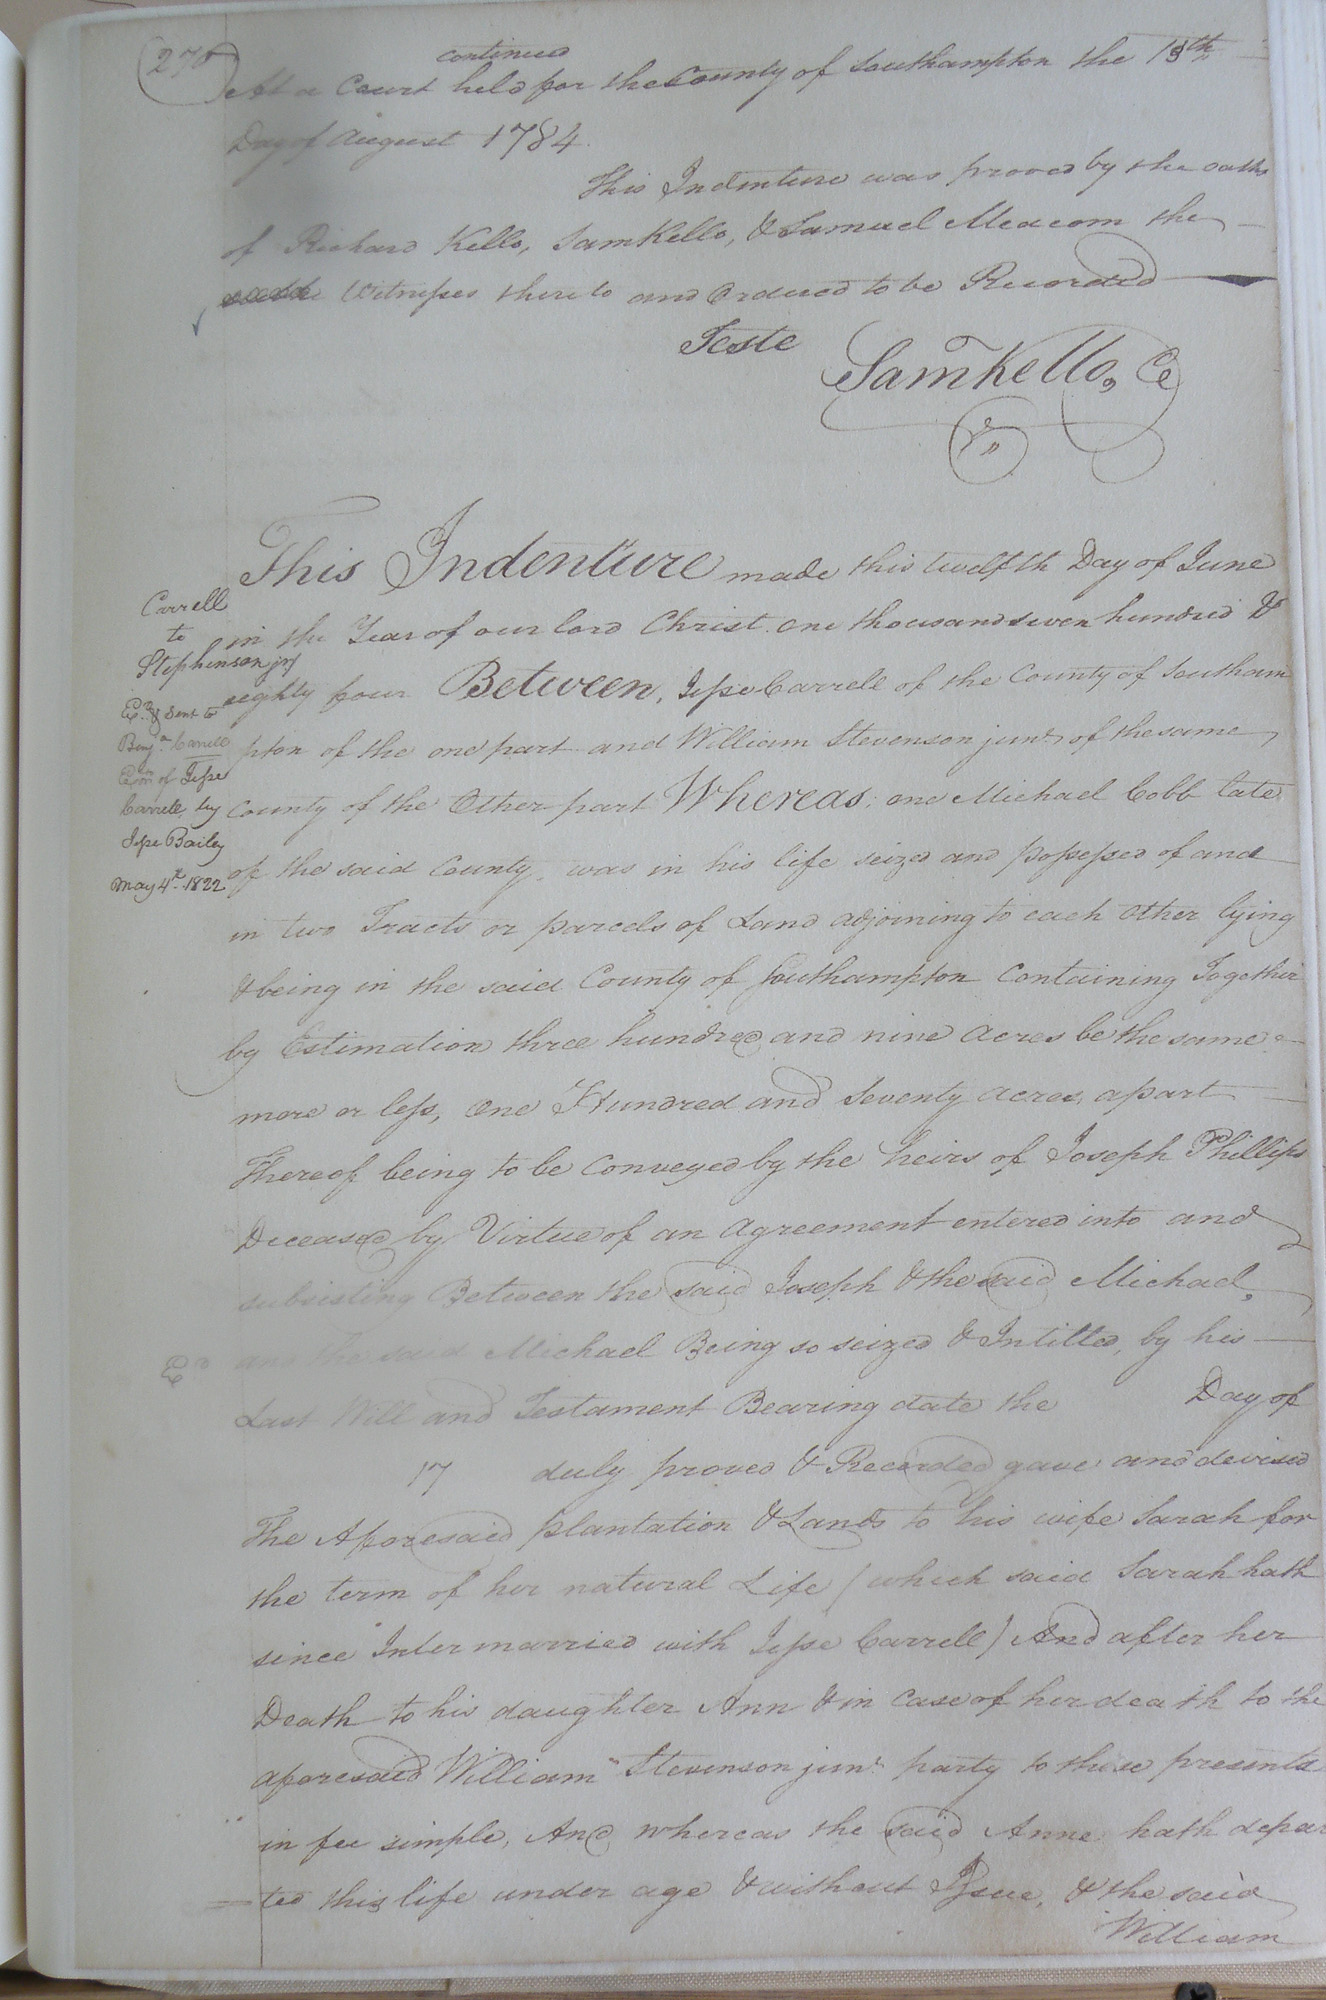 270
continued
At a Court held for the County of Southampton the 13th
Day of August 1784.
This Indenture was proved by the oaths
of Richard Kello, Sam Kello, & Samuel Meacom the
Witnesses thereto and Ordered to be Recorded
Teste
Saml Kello, Ce
This Indenture made this twelfth Day of June
in the Year of our lord Christ one thousand seven hundred &
eighty four Between, Jesse Carrell of the County of Southam
pton of the one part and William Stevenson junr of the same
County of the Other part Whereas; one Michael Cobb late
of the said County, was in his life seized and possessed of and
in two Tracts or parcels of Land adjoining to each Other lying
& being in the said County of Southampton Containing Together
by Estimation three hundred and nine acres be the same
more or less, One Hundred and Seventy acres, apart
Thereof being to be Conveyed by the heirs of Joseph Phillips
Deceased by Virtue of an agreement entered into and
subsisting Between the said Joseph & the said Michael,
and the said Michael Being so seized & Intitled, by his
Last Will and Testament Bearing date the Day of
17 duly proved & Recorded gave and devised
The Aforesaid plantation & Lands to his wife Sarah for
the term of her natural Life (which said Sarah hath
since Intermarried with Jesse Carrell) And after her
Death to his daughter Ann & in Case of her death to the
aforesaid William Stevenson junr party to these presents
in fee simple, And whereas the said Anne hath depar
ted this life under age & without Issue, & the said
William
Carrell
to
Stephenson jr
Ed & Sent to
Benja Carrell
Exor of Jesse
Carrell, by
Jesse Bailey
May 4th 1822
Ed